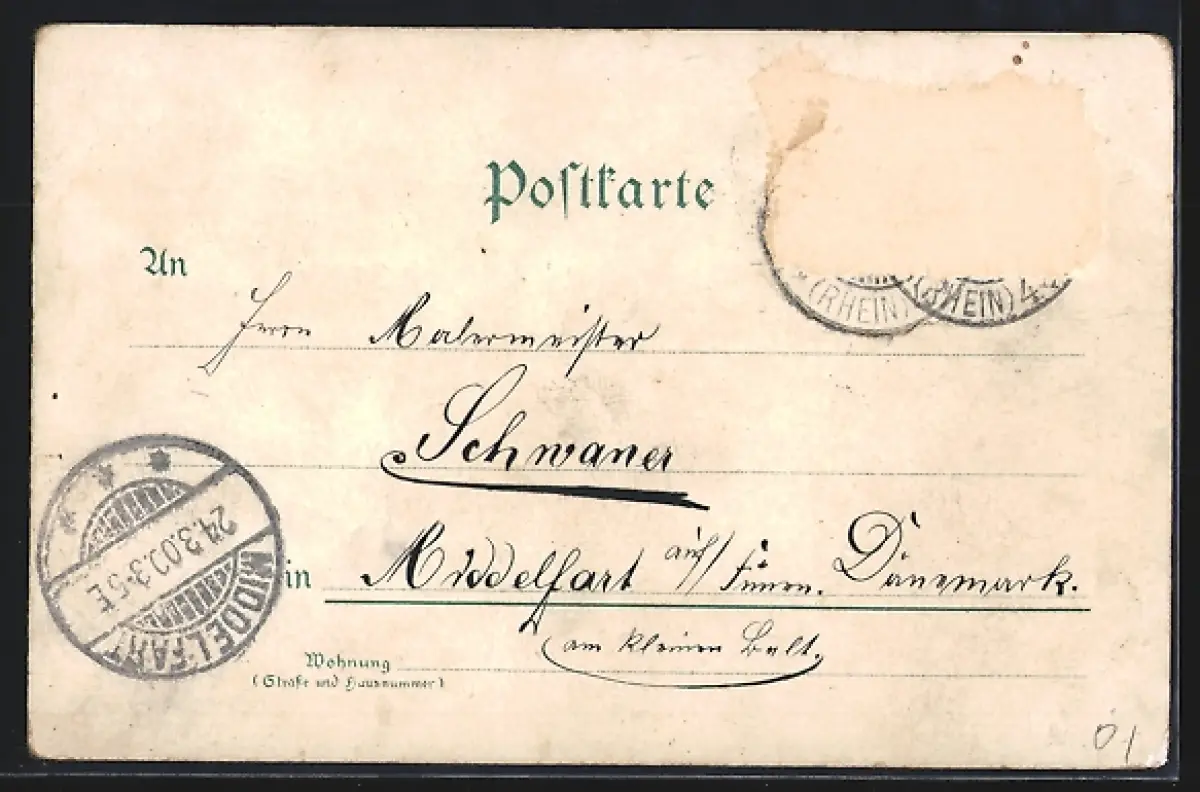 Postkarte
(RHEIN) (RHEIN) 4
An
Herrn Malermeister
Schwaner
in Middelfart auf Fünen. Dänemark.
(am kleinen Belt.)
Wohnung
(Straße und Hausnummer)
MIDDELFART
24.3.00.3-5E
01